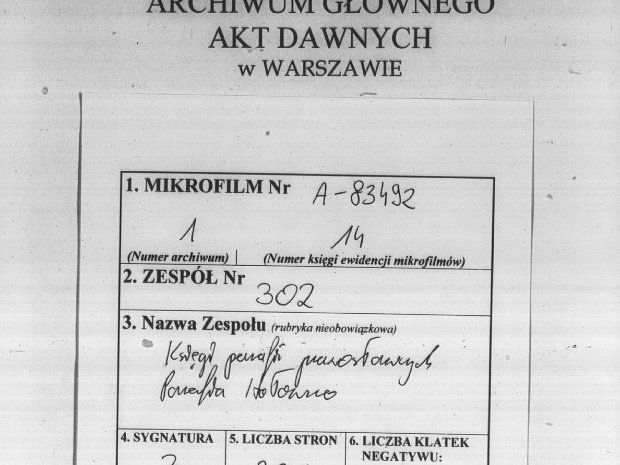 ARCHIWUM GŁÓWNEGO
AKT DAWNYCH
w WARSZAWIE
1. MIKROFILM Nr A-83492
1 14
(Numer archiwum) (Numer księgi ewidencji mikrofilmów)
2. ZESPÓŁ Nr
302
3. Nazwa Zespołu (rubryka nieobowiązkowa)
Księgi parafii prawosławnych
Parafia
4. SYGNATURA 5. LICZBA STRON 6. LICZBA KLATEK
NEGATYWU: